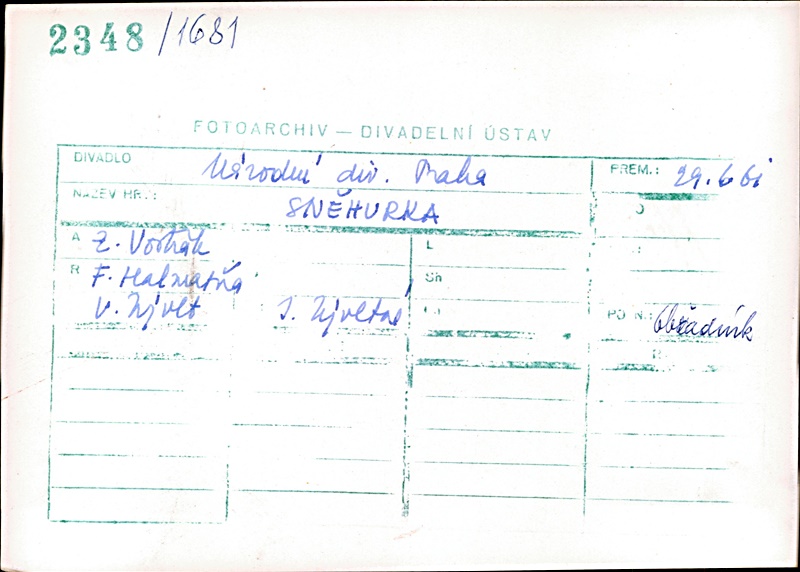 2348/1681
FOTOARCHIV — DIVADELNÍ ÚSTAV
DIVADLO Národní div. Praha PREM.: 29.6 61
NÁZEV HRY: SNĚHURKA
A Z. Vostřák L
R F. Halmatňa Sh
V. Jívlt J. Jívltová PO N.: Obřadník